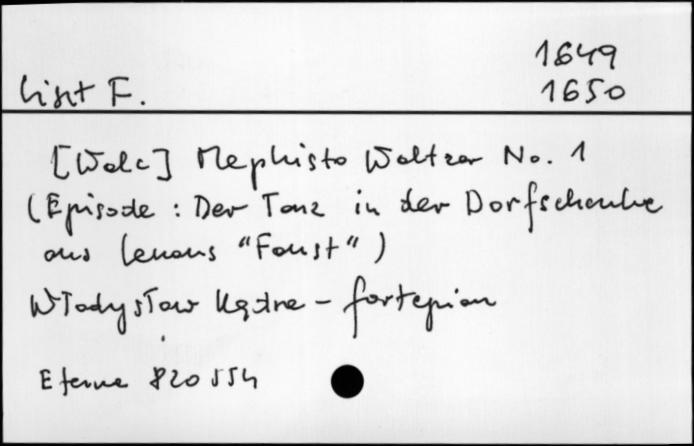 1649
Liszt F. 1650
[Walc] Mephisto Waltzer No. 1
(Episode : Der Tanz in der Dorfschenke
aus Lenaus "Faust")
Władysław Kędra - fortepian
Eterna 820 554